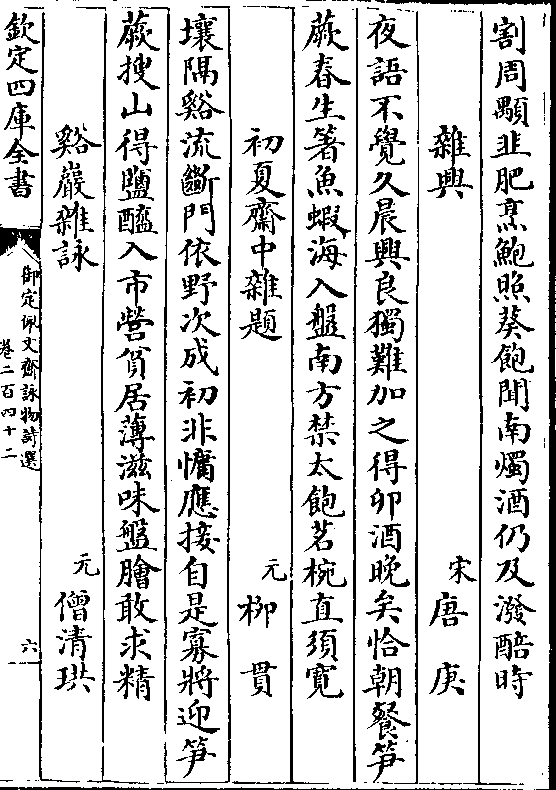 割周顒韭肥烹鮑照葵飽聞南燭酒仍及潑醅時
雜興 宋 唐庚
夜語不覺久晨興良獨難加之得卯酒晚矣恰朝餐笋
蕨春生箸魚蝦海入盤南方禁太飽茗椀直須寛
初夏齋中雜題 元 柳貫
壤隔谿流斷門依野次成初非慵應接自是寡將迎笋
蕨搜山得鹽醯入市營貧居薄滋味盤膾敢求精
谿巖雜詠 元 僧清珙
欽定四庫全書
御定佩文齋詠物詩選
卷二百四十二
六